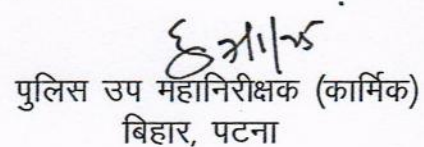 पुलिस उप महानिरीक्षक (कार्मिक)
बिहार, पटना